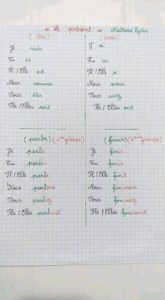 Le présent
(être)
Je suis
Tu es
Il / Elle est
Nous sommes
Vous êtes
Ils / Elles sont
(avoir)
J' ai
Tu as
Il / Elle a
Nous avons
Vous avez
Ils / Elles ont
(parler) (1er groupe)
Je parle
Tu parles
Il / Elle parle
Nous parlons
Vous parlez
Ils / Elles parlent
(finir) (2ème groupe)
Je finis
Tu finis
Il / Elle finit
Nous finissons
Vous finissez
Ils / Elles finissent